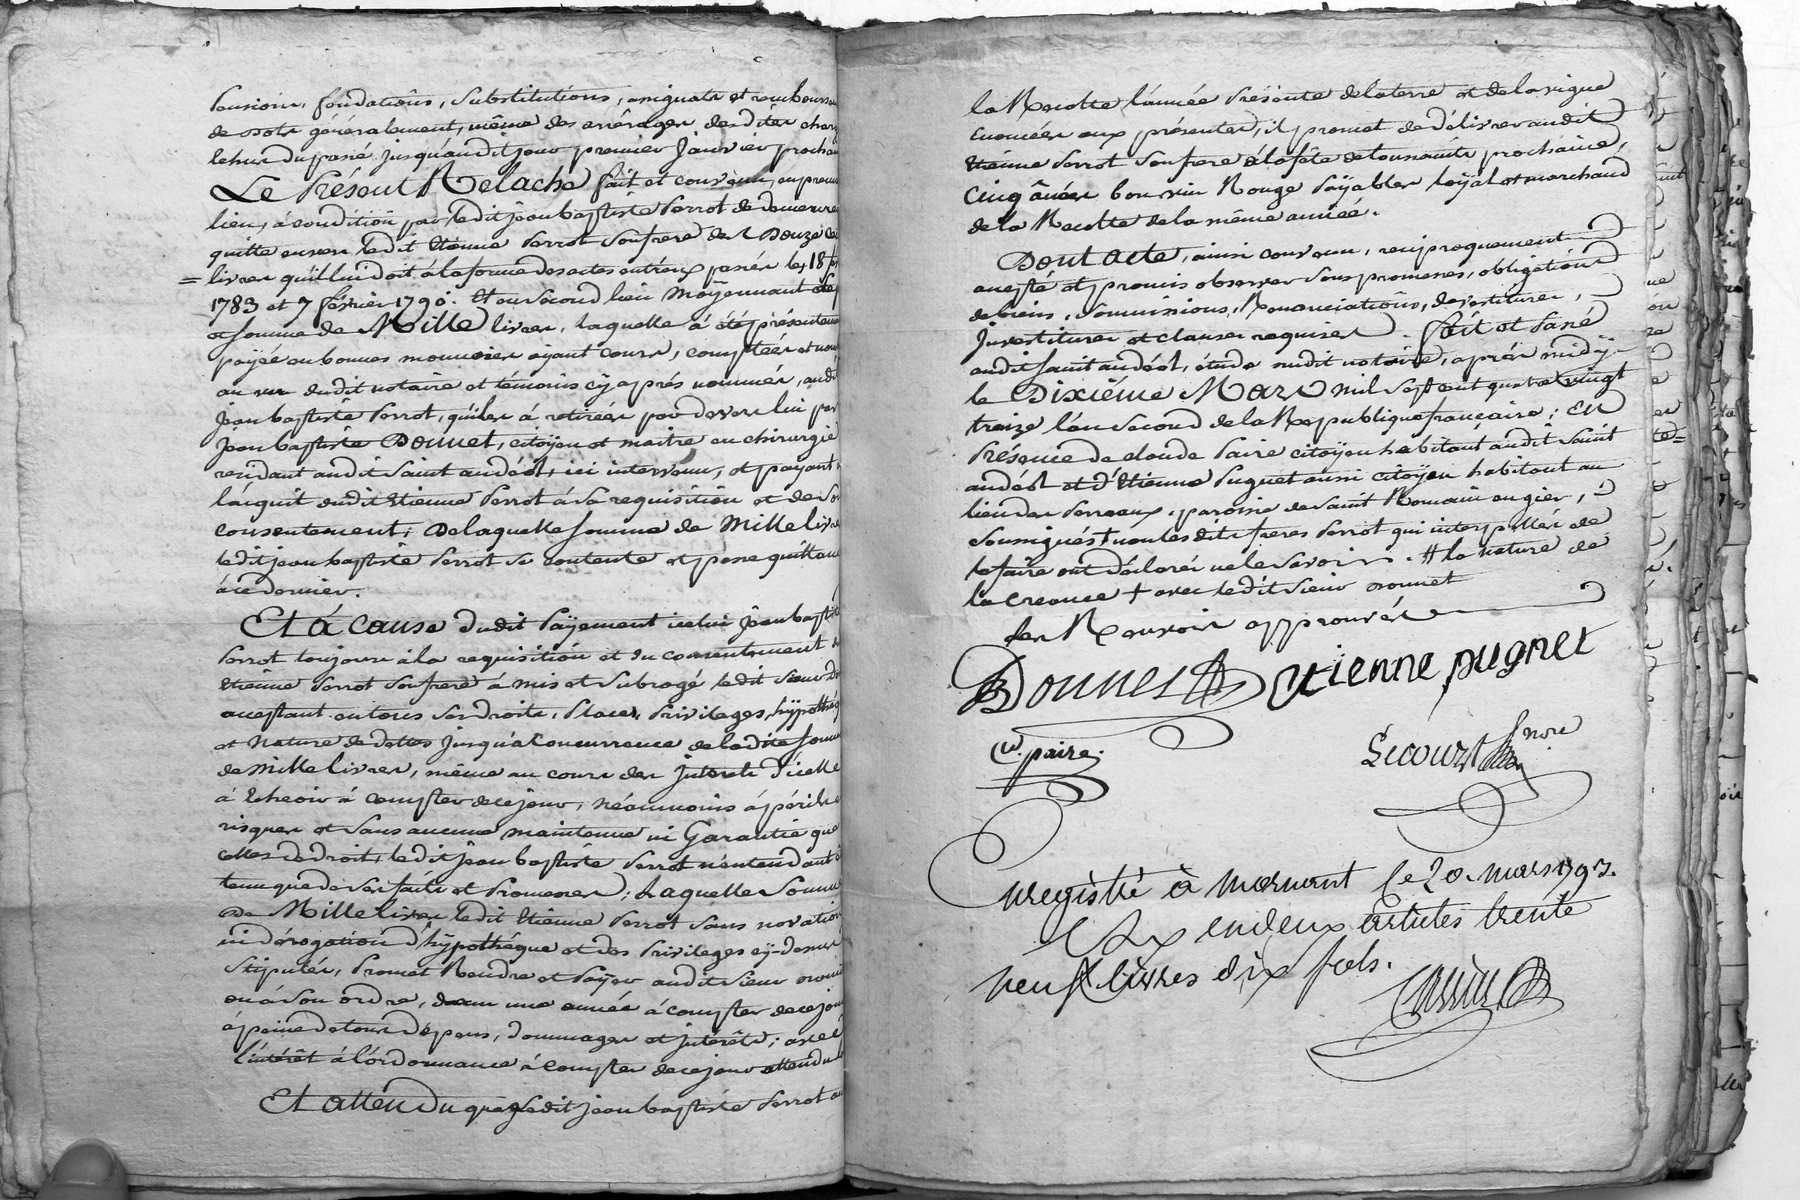 Pensions, fondations, substitutions, assignats et rembourse
de dots généralement, même des arrérages desdites char
échus du passé jusqu'audit jour premier janvier prochai
Le Présent Relache fait et convenu, en premie
lieu, à condition par ledit jean baptiste Perrot de demeurer
quitte envers ledit Etienne Perrot son frere des Douze ce
= livres qu'il lui doit à la forme des actes entr'eux passés les 18
1783 et 7 février 1790. Et en second lieu moÿennant
et somme de Mille livres, laquelle à été présenteme
paÿée en bonnes monnoies aÿant cours, comptées et nom
au vu dudit notaire et témoins cÿ après nommés, audit
Jean baptiste Perrot, qui les à retirées par devers lui par
Jean baptiste Donnet, citoÿen et maitre en chirurgie
résidant audit Saint andéol, ici intervenu, et paÿant à
l'acquit dudit Etienne Perrot à sa requisition et de son
consentement; De laquelle somme de Mille livres
ledit jean baptiste Perrot se contente et passe quittance
à ce dernier.
Et à cause dudit Paÿement icelui jean baptiste
Perrot toujours à la requisition et du consentement d
Etienne Perrot son frere à mis et subrogé ledit sieur Do
acceptant en tous ses droits, Place, Privileges, hÿpothéq
et Nature de dettes jusqu'à Concurrence de ladite somme
de Mille livres, même au cours des Interets d'icelle
à échoir à compter de ce jour, néanmoins à périls
risques et sans aucune maintenue ni Garantie que
celles de droit, ledit jean baptiste Perrot n'entendant
tenu que de ses faits et Promesses; Laquelle Somme
De Mille livres ledit Etienne Perrot sans novation
ni dérogation d'hÿpothéque et des Privileges cÿ-dessus
Stipulés, Promet Rendre et Paÿer audit sieur Donnet
ou à son ordre, dans une année à compter de ce jour
à peine de tous dépens, dommages et intérêts; avec
l'intérêt à l'ordonnance à compter de ce jour attendu
Et attendu que ledit jean baptiste Perrot au
la Recolte l'année Présente de la terre et de la vigne
énoncées aux présentes, il promet de délivrer audit
Etienne Perrot son frere à la fête de toussaints prochaine,
Cinq ânées bon vin Rouge Paÿables loÿal et marchand
de la Recolte de la même année.
Dont Acte, ainsi convenu, reciproquement
accepté et promis observer sous promesses, obligations
de biens, Soumissions, Renonciations, devestitures,
Investitures et clauses requises. Fait et Passé
audit saint andéol, étude dudit notaire, après midÿ
le Dixiéme Mars mil sept cent quatre vingt
treize l'an second de la République française; En
Présence de claude Paire citoÿen habitant audit Saint
andéol et d'Etienne Pugnet aussi citoÿen habitant au
lieu des Perreaux, paroisse de Saint Romain en gier,
Soussignés † non lesdits freres Perrot qui interpellés de
le faire ont déclarés ne le savoir. # la nature de
la créance † avec ledit sieur Donnet
les Renvois approuvés
Donnet Etienne pugnet
Cl. paire.
Lecourt nore
Enregistré à Mornant le 20. mars 1793.
en deux articles trente
neuf livres dix sols.